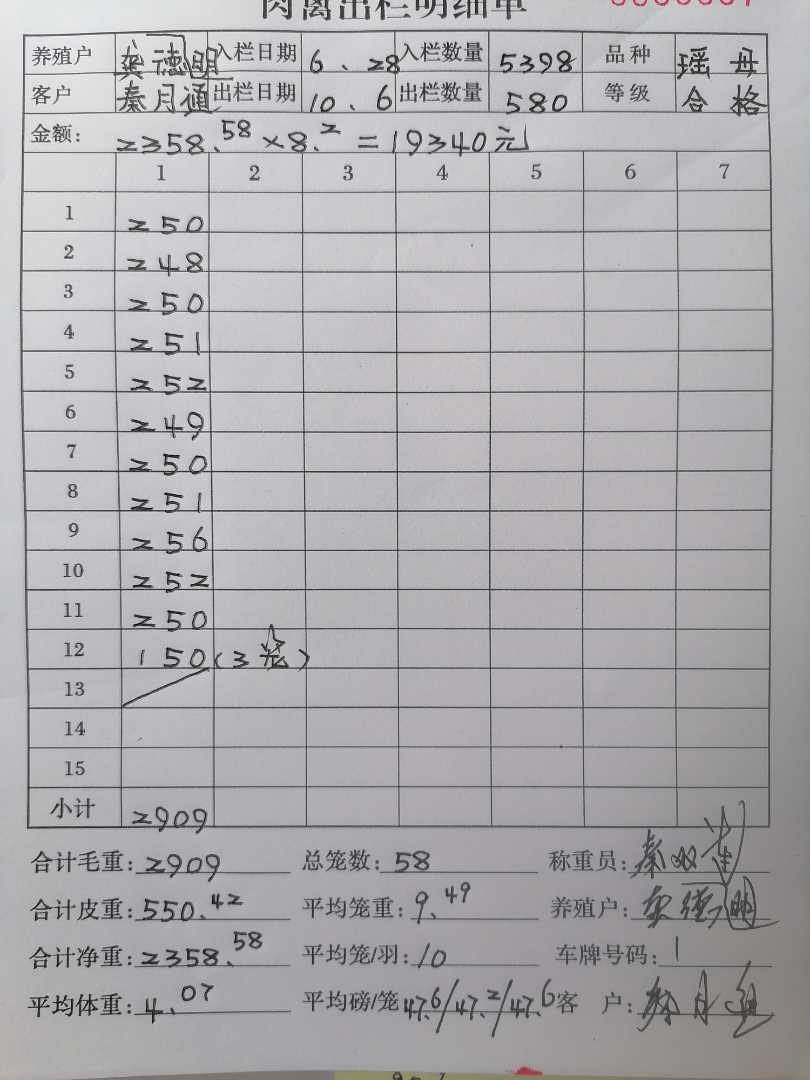 肉禽出栏明细单
养殖户 龚德明 入栏日期 6、28 入栏数量 5398 品种 瑶母
客户 秦月通 出栏日期 10、6 出栏数量 580 等级 合格
金额: 2358.58×8.2=19340元
1 2 3 4 5 6 7
1 250
2 248
3 250
4 251
5 252
6 249
7 250
8 251
9 256
10 252
11 250
12 150(3笼)
13
14
15
小计 2909
合计毛重: 2909 总笼数: 58 称重员:
合计皮重: 550.42 平均笼重: 9.49 养殖户:
合计净重: 2358.58 平均笼/羽: 10 车牌号码: 1
平均体重: 4.07 平均磅/笼 47.6/47.2/47.6 客户: